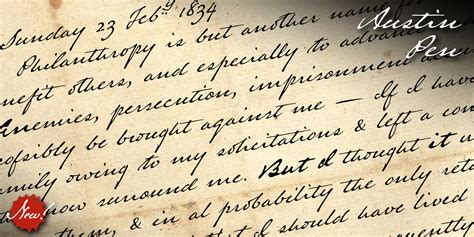 Sunday 23 Feby 1834
Philanthropy is but another name for
nefit others, and especially to advance
Enemies, persecution, imprisonment
cofsibly be brought against me — If I have
amily owing to my solicitations & left a
now surround me. But I thought it
them, & in al probability the only
I should have lived
Austin
Pen
New!